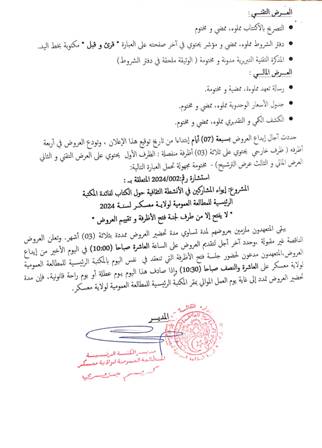 العـرض التقنـي :
التصريح بالاكتتاب مملوء، ممضي و مختوم
دفتر الشروط مملوء، ممضي و مؤشر يحتوي في آخر صفحته على العبارة " قرئ و قبل " مكتوبة بخط اليد.
المذكرة التقنية التبريرية مدونة و مختومة ( الوثيقة ملحقة في دفتر الشروط)
العـرض المـالـي :
رسالة تعهد مملوءة، ممضية و مختومة.
جدول الأسعار الوحدوية مملوء، ممضي و مختوم.
الكشف الكمي و التقديري مملوء، ممضي و مختوم.
حددت آجال إيداع العروض بسبعة (07) أيام إبتداءا من تاريخ توقيع هذا الإعلان ، وتودع العروض في أربعة
أظرفة ( ظرف خارجي يحتوي على ثلاثة (03) أظرفة منفصلة : الظرف الأول يحتوي على العرض التقني و الثاني
العرض المالي و الثالث عرض الترشيح)- مختومة مجهولة تحمل العبارة التالية:
استشارة رقم:2024/002 المتعلقة بـ :
المشروع: إيواء المشاركين في الأنشطة الثقافية حول الكتاب لفائدة المكتبة
الرئيسية للمطالعة العمومية لولايـة معسكـر لسنة 2024
" لا يفتح إلا من طرف لجنة فتح الأظرفة و تقييم العروض "
يبقى المتعهدون ملزمين بعروضهم لمدة تساوي مدة تحضير العروض ممددة بثلاثة (03) أشهر. وتعلن العروض
الناقصة غير مقبولة .وحدد آخر أجل لتقديم العروض على الساعة العاشرة صباحا (10:00) في اليوم الأخير من إيداع
العروض،المتعهدون مدعوون لحضور جلسة فتح الأظرفة التي تنعقد في نفس اليوم بالمكتبة الرئيسية للمطالعة العمومية
لولاية معسكر على العاشرة والنصف صباحا (10:30) وإذا صادف هذا اليوم يوم عطلة أو يوم راحة قانونية، فإن مدة
تحضير العروض تمدد إلى غاية يوم العمل الموالي بمقر المكتبة الرئيسية للمطالعة العمومية لولاية معسكر.
المديـر
مديـر المكتبة الرئيسية
للمطالعة العمومية لولاية معسكر